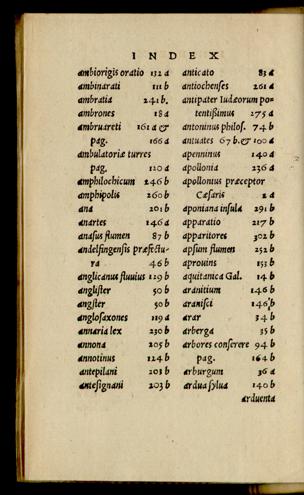 INDEX
ambiorigis oratio 132 a
ambinarati 111 b
ambratia 241 b.
ambrones 18 a
ambruareti 161 a &
pag. 166 a
ambulatoriæ turres
pag. 120 a
amphilochicum 246 b
amphipolis 260 b
ana 201 b
anartes 146 a
anasus flumen 87 b
andelfingensis præfectu-
ra 46 b
anglicanus fluuius 129 b
anglister 50 b
angster 50 b
anglosaxones 119 a
annaria lex 230 b
annona 205 b
annotinus 124 b
antepilani 203 b
antesignani 203 b
anticato 83 a
antiochenses 261 a
antipater Iudæorum po-
tentißimus 275 a
antoninus philos. 74 b
antuates 67 b. & 100 a
apenninus 140 a
apollonia 236 a
apollonius præceptor
Cæsaris 2 a
aponiana insula 291 b
apparatio 217 b
apparitores 302 b
apsum flumen 252 b
aprouins 151 b
aquitanica Gal. 14 b
aranitium 146 b
aranisci 146 b
arar 34 b
arberga 35 b
arbores conserere 94 b
pag. 164 b
arburgum 36 a
ardua sylua 140 b
arduenta